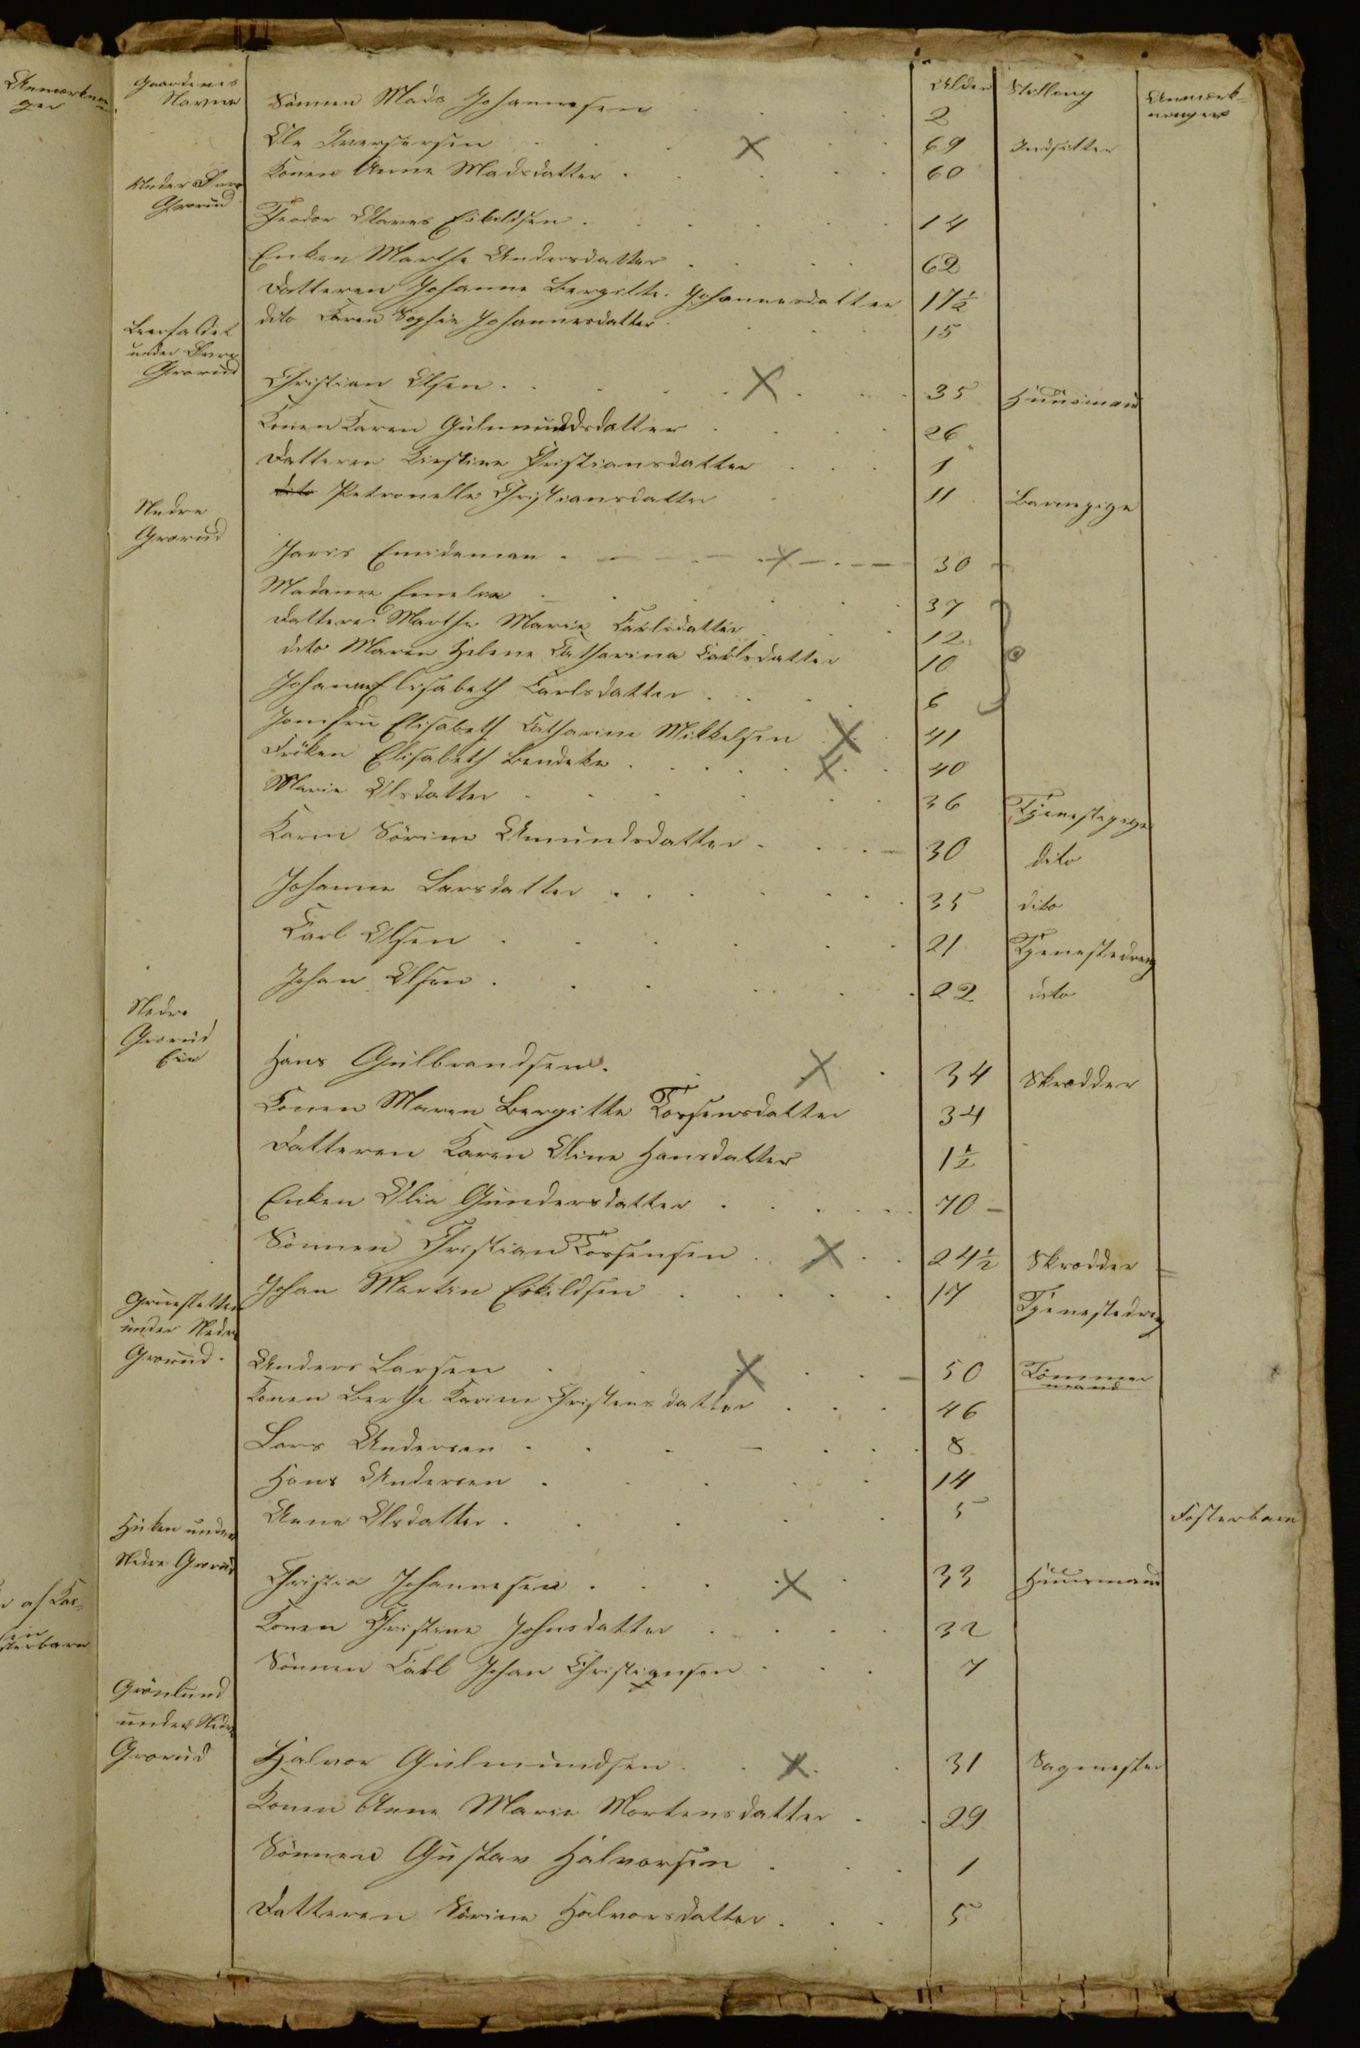 Anmærknin-
ger
Gaardenes Navne
Alder Stilling Anmærk-
ninger
Sönnen Mads Johannesen 2
Ole Iversersen 69 Indsidder
Konen Anne Madsdatter 60
Under Övre
Grorud
Theodor Eskeldsen 14
Enken Marthe Andersdatter 62
Datteren Johanne Bergitte Johannesdatter 17½
dito Karen Sophie Johannesdatter 15
Leerfaldet
under Övre
Grorud
Christian Olsen 35 Huusmand
Konen Karen Gulmundsdatter 26
Datteren Kirstine Christiansdatter 1
dito Petronelle Christiansdatter 11 Barnepige
Nedre
Grorud
30
Madame 37
Datteren Marthe Marie Carlsdatter 12
dito Maren Helene Catharina Carlsdatter 10
Johanne Elisabeth Carlsdatter 6
Jomfru Elisabeth Catharine Mikkelsen 41
Fröken Elisabeth Bendeke 40
Marie Olsdatter 36 Tjenestepige
Karen Sörine Amundsdatter 30 dito
Johanne Larsdatter 35 dito
Carl Olsen 21 Tjenestedreng
Johan Olsen 22 dito
Nedre
Grorud
Eie
Hans Gulbrandsen 34 Skrædder
Konen Maren Bergitte Torstensdatter 34
Datteren Karen Oline Hansdatter 1½
Enken Olia Gundersdatter 70
Sönnen Christian Torstensen 24½ Skrædder
Johan Martin Eskildsen 17 Tjenestedreng
under Nedre
Grorud
Anders Larsen 50 Tömmer
mand
Konen Berthe Karine Christensdatter 46
Lars Andersen 8
Hans Andersen 14
Anne Olsdatter 5 Fosterbarn
under
Nedre Grorud
Christia Johannesen 33 Huusmand
Konen Christine Johnsdatter 32
Sönnen Carl Johan Christiansen 7
af
sterbarn
Grönlund
under Nedre
Grorud
Halvor Gulmundsen 31 Sagmester
Konen Anne Marie Mortensdatter 29
Sönnen Gustav Halvorsen 1
Datteren Sörine Halvorsdatter 5